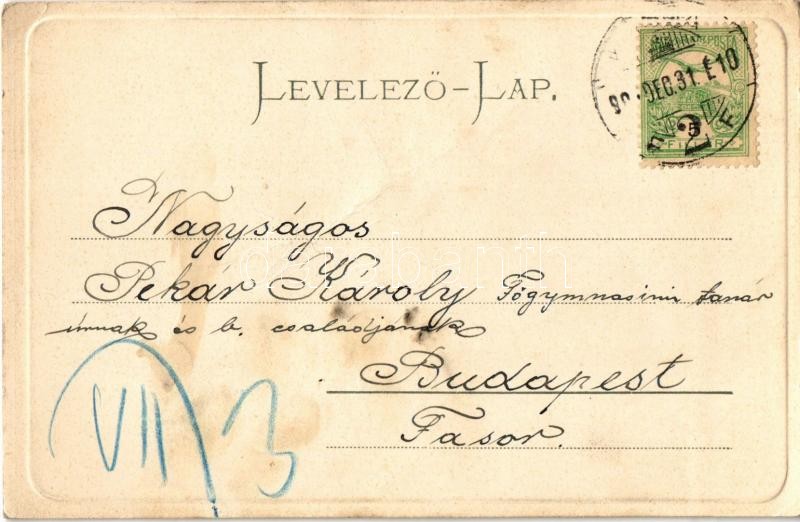 LEVELEZŐ-LAP.
DEC. 31. E10
Nagyságos
Pekár Károly Főgymnasiumi tanár
úrnak és b. családjának
Budapest
Fasor.
VII 3